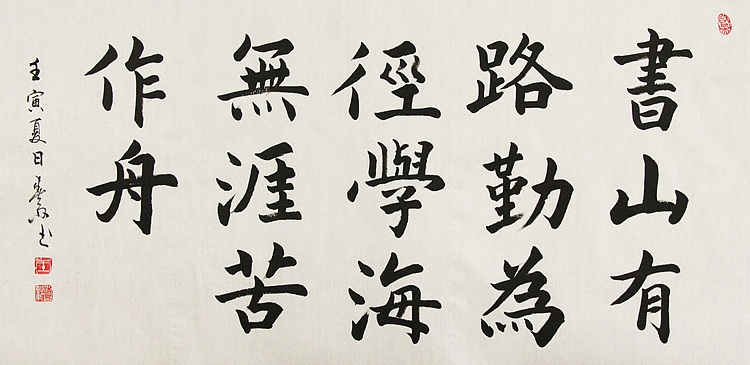 書山有
路勤為
徑學海
無涯苦
作舟
壬寅夏日